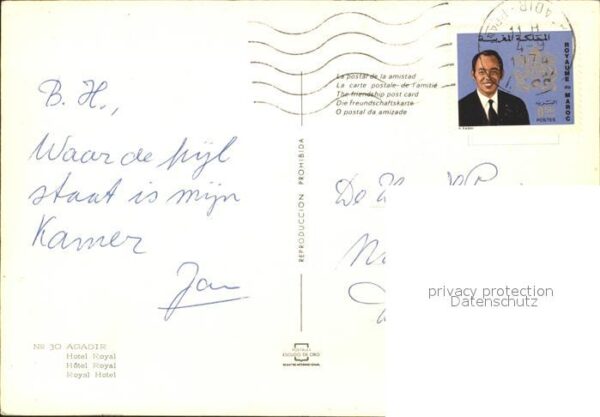 11 H
4-9
1974
المملكة المغربية
ROYAUME DU MAROC
البريد
POSTES
La postal de la amistad
La carte postale de l'amitié
The friendship post card
Die freundschaftskarte
O postal da amizade
B. H.,
Waar de pijl
staat is mijn
Kamer
Jan
REPRODUCCION PROHIBIDA
De
privacy protection
Datenschutz
Nº 30 AGADIR
Hotel Royal
Hôtel Royal
Royal Hotel
POSTALES
ESCUDO DE ORO